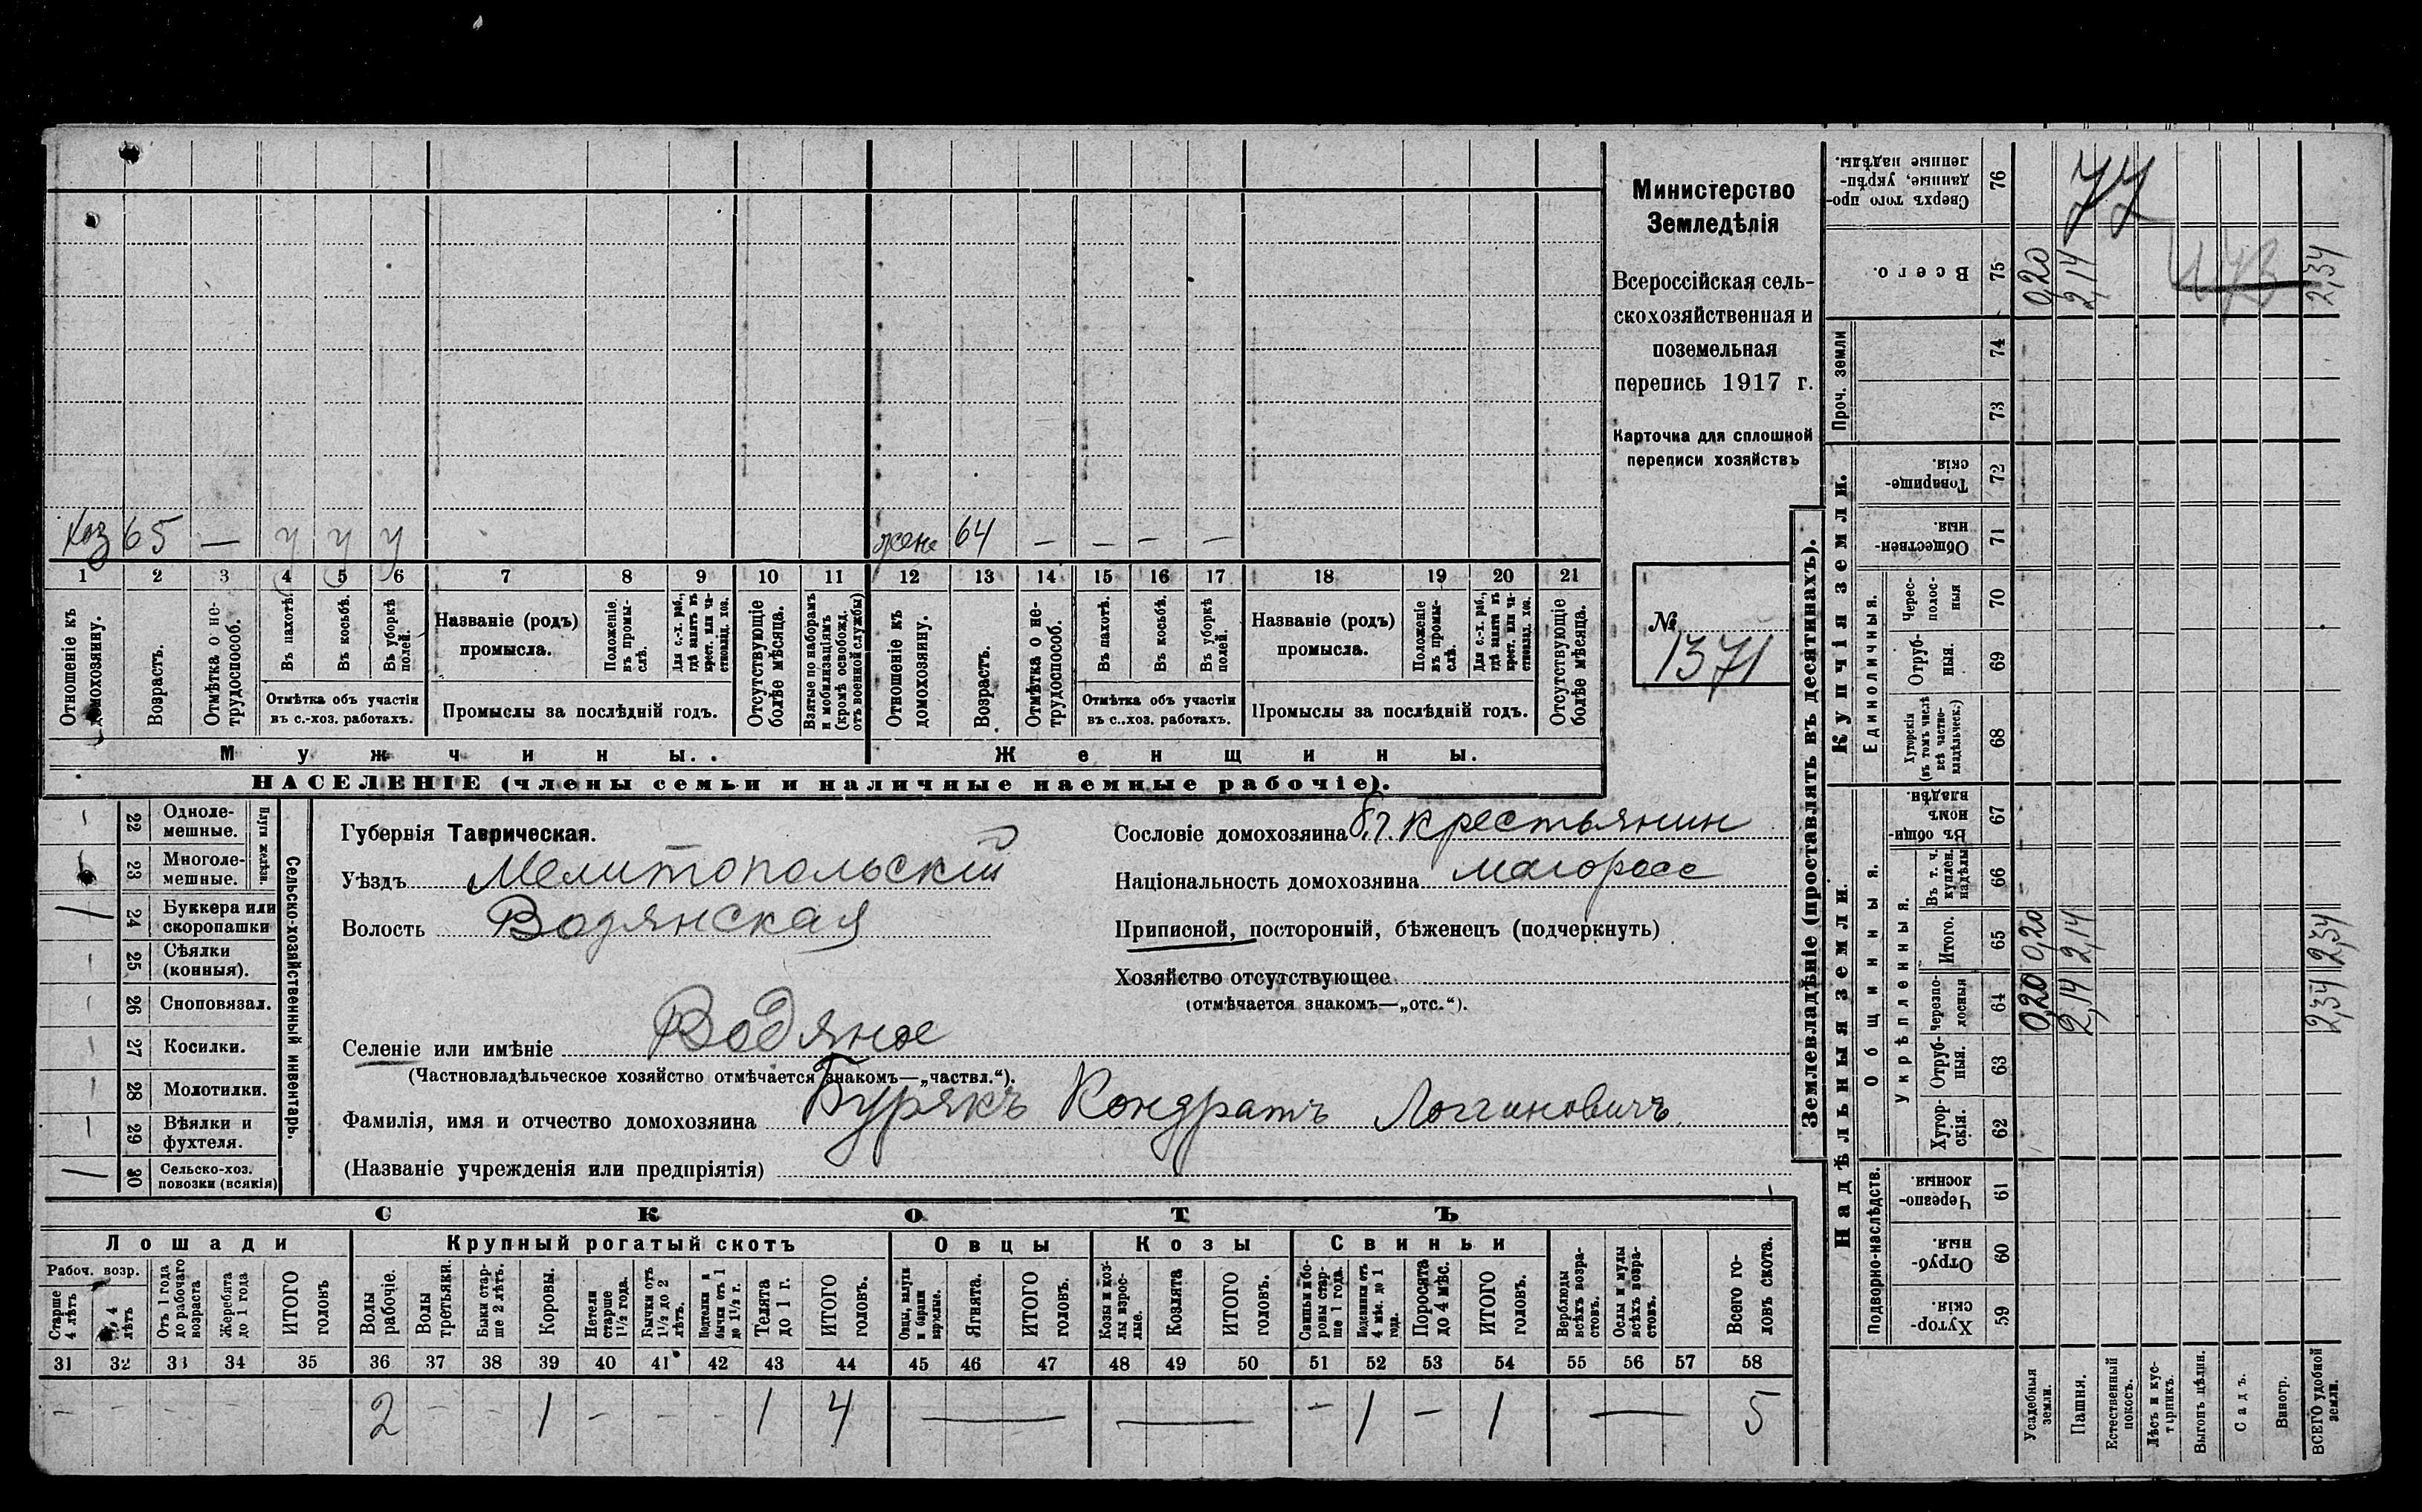 Министерство
Земледѣлія
Всероссійская сель-
скохозяйственная и
поземельная
перепись 1917 г.
Карточка для сплошной
переписи хозяйствъ
№
1371
Хоз 65 — у у у жена 64 — — — —
1 2 3 4 5 6 7 8 9 10 11 12 13 14 15 16 17 18 19 20 21
Отношеніе къ домохозяину.
Возрастъ.
Отмѣтка о не-трудоспособ.
Въ пахотѣ.
Въ косьбѣ.
Въ уборкѣ полей.
Отмѣтка объ участіи
въ с.-хоз. работахъ.
Названіе (родъ)
промысла.
Положеніе въ промы-слѣ.
Для с.-х. раб., гдѣ занятъ въ крест. или ча-стновлад. хоз.
Промыслы за послѣдній годъ.
Отсутствующіе болѣе мѣсяца.
Взятые по наборамъ и мобилизаціямъ (кромѣ освобожд. отъ военной службы)
Отношеніе къ домохозяину.
Возрастъ.
Отмѣтка о не-трудоспособ.
Въ пахотѣ.
Въ косьбѣ.
Въ уборкѣ полей.
Отмѣтка объ участіи
въ с.-хоз. работахъ.
Названіе (родъ)
промысла.
Положеніе въ промы-слѣ.
Для с.-х. раб., гдѣ занята въ крест. или ча-стновлад. хоз.
Промыслы за послѣдній годъ.
Отсутствующіе болѣе мѣсяца.
Мужчины. Женщины.
НАСЕЛЕНІЕ (члены семьи и наличные наемные рабочіе).
Сельско-хозяйственный инвентарь.
Плуги желѣзн.
22 Одноле-мешные.
23 Многоле-мешные.
24 Буккера или скоропашки
25 Сѣялки (конныя).
26 Сноповязал.
27 Косилки.
28 Молотилки.
29 Вѣялки и фухтеля.
30 Сельско-хоз. повозки (всякія)
Губернія Таврическая.
Уѣздъ Мелитопольскій
Волость Водянская
Селеніе или имѣніе Водяное
(Частновладѣльческое хозяйство отмѣчается знакомъ—„частвл.“).
Фамилія, имя и отчество домохозяина Бурякъ Кондратъ Логгиновичъ
(Названіе учрежденія или предпріятія)
Сословіе домохозяина крестьянин
Національность домохозяина малоросс
Приписной, посторонній, бѣженецъ (подчеркнуть)
Хозяйство отсутствующее
(отмѣчается знакомъ—„отс.“).
СКОТЪ
Лошади Крупный рогатый скотъ Овцы Козы Свиньи
Рабоч. возр.
Старше 4 лѣтъ
4 лѣтъ
Отъ 1 года до рабочаго возраста
Жеребята до 1 года
ИТОГО головъ
Волы рабочіе.
Волы третьяки.
Быки стар-ше 2 лѣтъ.
Коровы.
Нетели старше 1½ года.
Бычки отъ 1½ до 2 лѣтъ.
Подтелки и бычки отъ 1 до 1½ г.
Телята до 1 г.
ИТОГО головъ.
Овцы, валухи и бараны взрослые.
Ягнята.
ИТОГО головъ.
Козы и коз-лы взрос-лые.
Козлята
ИТОГО головъ.
Свиньи и бо-ровы стар-ше 1 года.
Подсвинки отъ 4 мѣс. до 1 года.
Поросята до 4 мѣс.
ИТОГО головъ.
Верблюды всѣхъ возра-стовъ.
Ослы и мулы всѣхъ возра-стовъ.
Всего го-ловъ скота.
31 32 33 34 35 36 37 38 39 40 41 42 43 44 45 46 47 48 49 50 51 52 53 54 55 56 57 58
- - - - - 2 - - 1 - - - 1 4 — — - 1 - 1 — 5
Землевладѣніе (проставлять въ десятинахъ).
Надѣльныя земли. Купчія земли. Проч. земли
Подворно-наслѣдств. Общинныя. Укрѣпленныя. Единоличныя.
Хутор-скія. 59
Отруб-ныя. 60
Черезпо-лосныя. 61
Хутор-скія. 62
Отруб-ныя. 63
Черезпо-лосныя 64
Итого. 65
Въ т. ч. куплен. надѣлы 66
Въ общи-номъ владѣн. 67
Хуторскія (въ томъ числѣ всѣ частно-владѣльческ.) 68
Отруб-ныя. 69
Черес-полос-ныя 70
Обществен-ныя. 71
Товарище-скія. 72
73
74
Всего. 75
Сверхъ того про-данные, укрѣп-ленные надѣлы. 76
Усадебныя земли. 0,20 0,20 0,20
Пашня. 2,14 2,14 2,14
Естественный покосъ.
Лѣсъ и кус-тарникъ.
Выгонъ цѣлин.
Садъ.
Виногр.
ВСЕГО удобной земли. 2,34 2,34 2,34
77